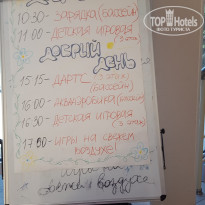 TopHotels
ФОТО ТУРИСТА
10:30 - ЗАРЯДКА (БАССЕЙН)
11:00 - ДЕТСКАЯ ИГРОВАЯ
ДОБРЫЙ
ДЕНЬ
15:15 - ДАРТС (3 этаж)
(БАССЕЙН)
16:00 - АКВААЭРОБИКА (БАССЕЙН)
16:30 - ДЕТСКАЯ ИГРОВАЯ
(3 этаж)
17:30 - ИГРЫ НА СВЕЖЕМ
ВОЗДУХЕ!
воздухе